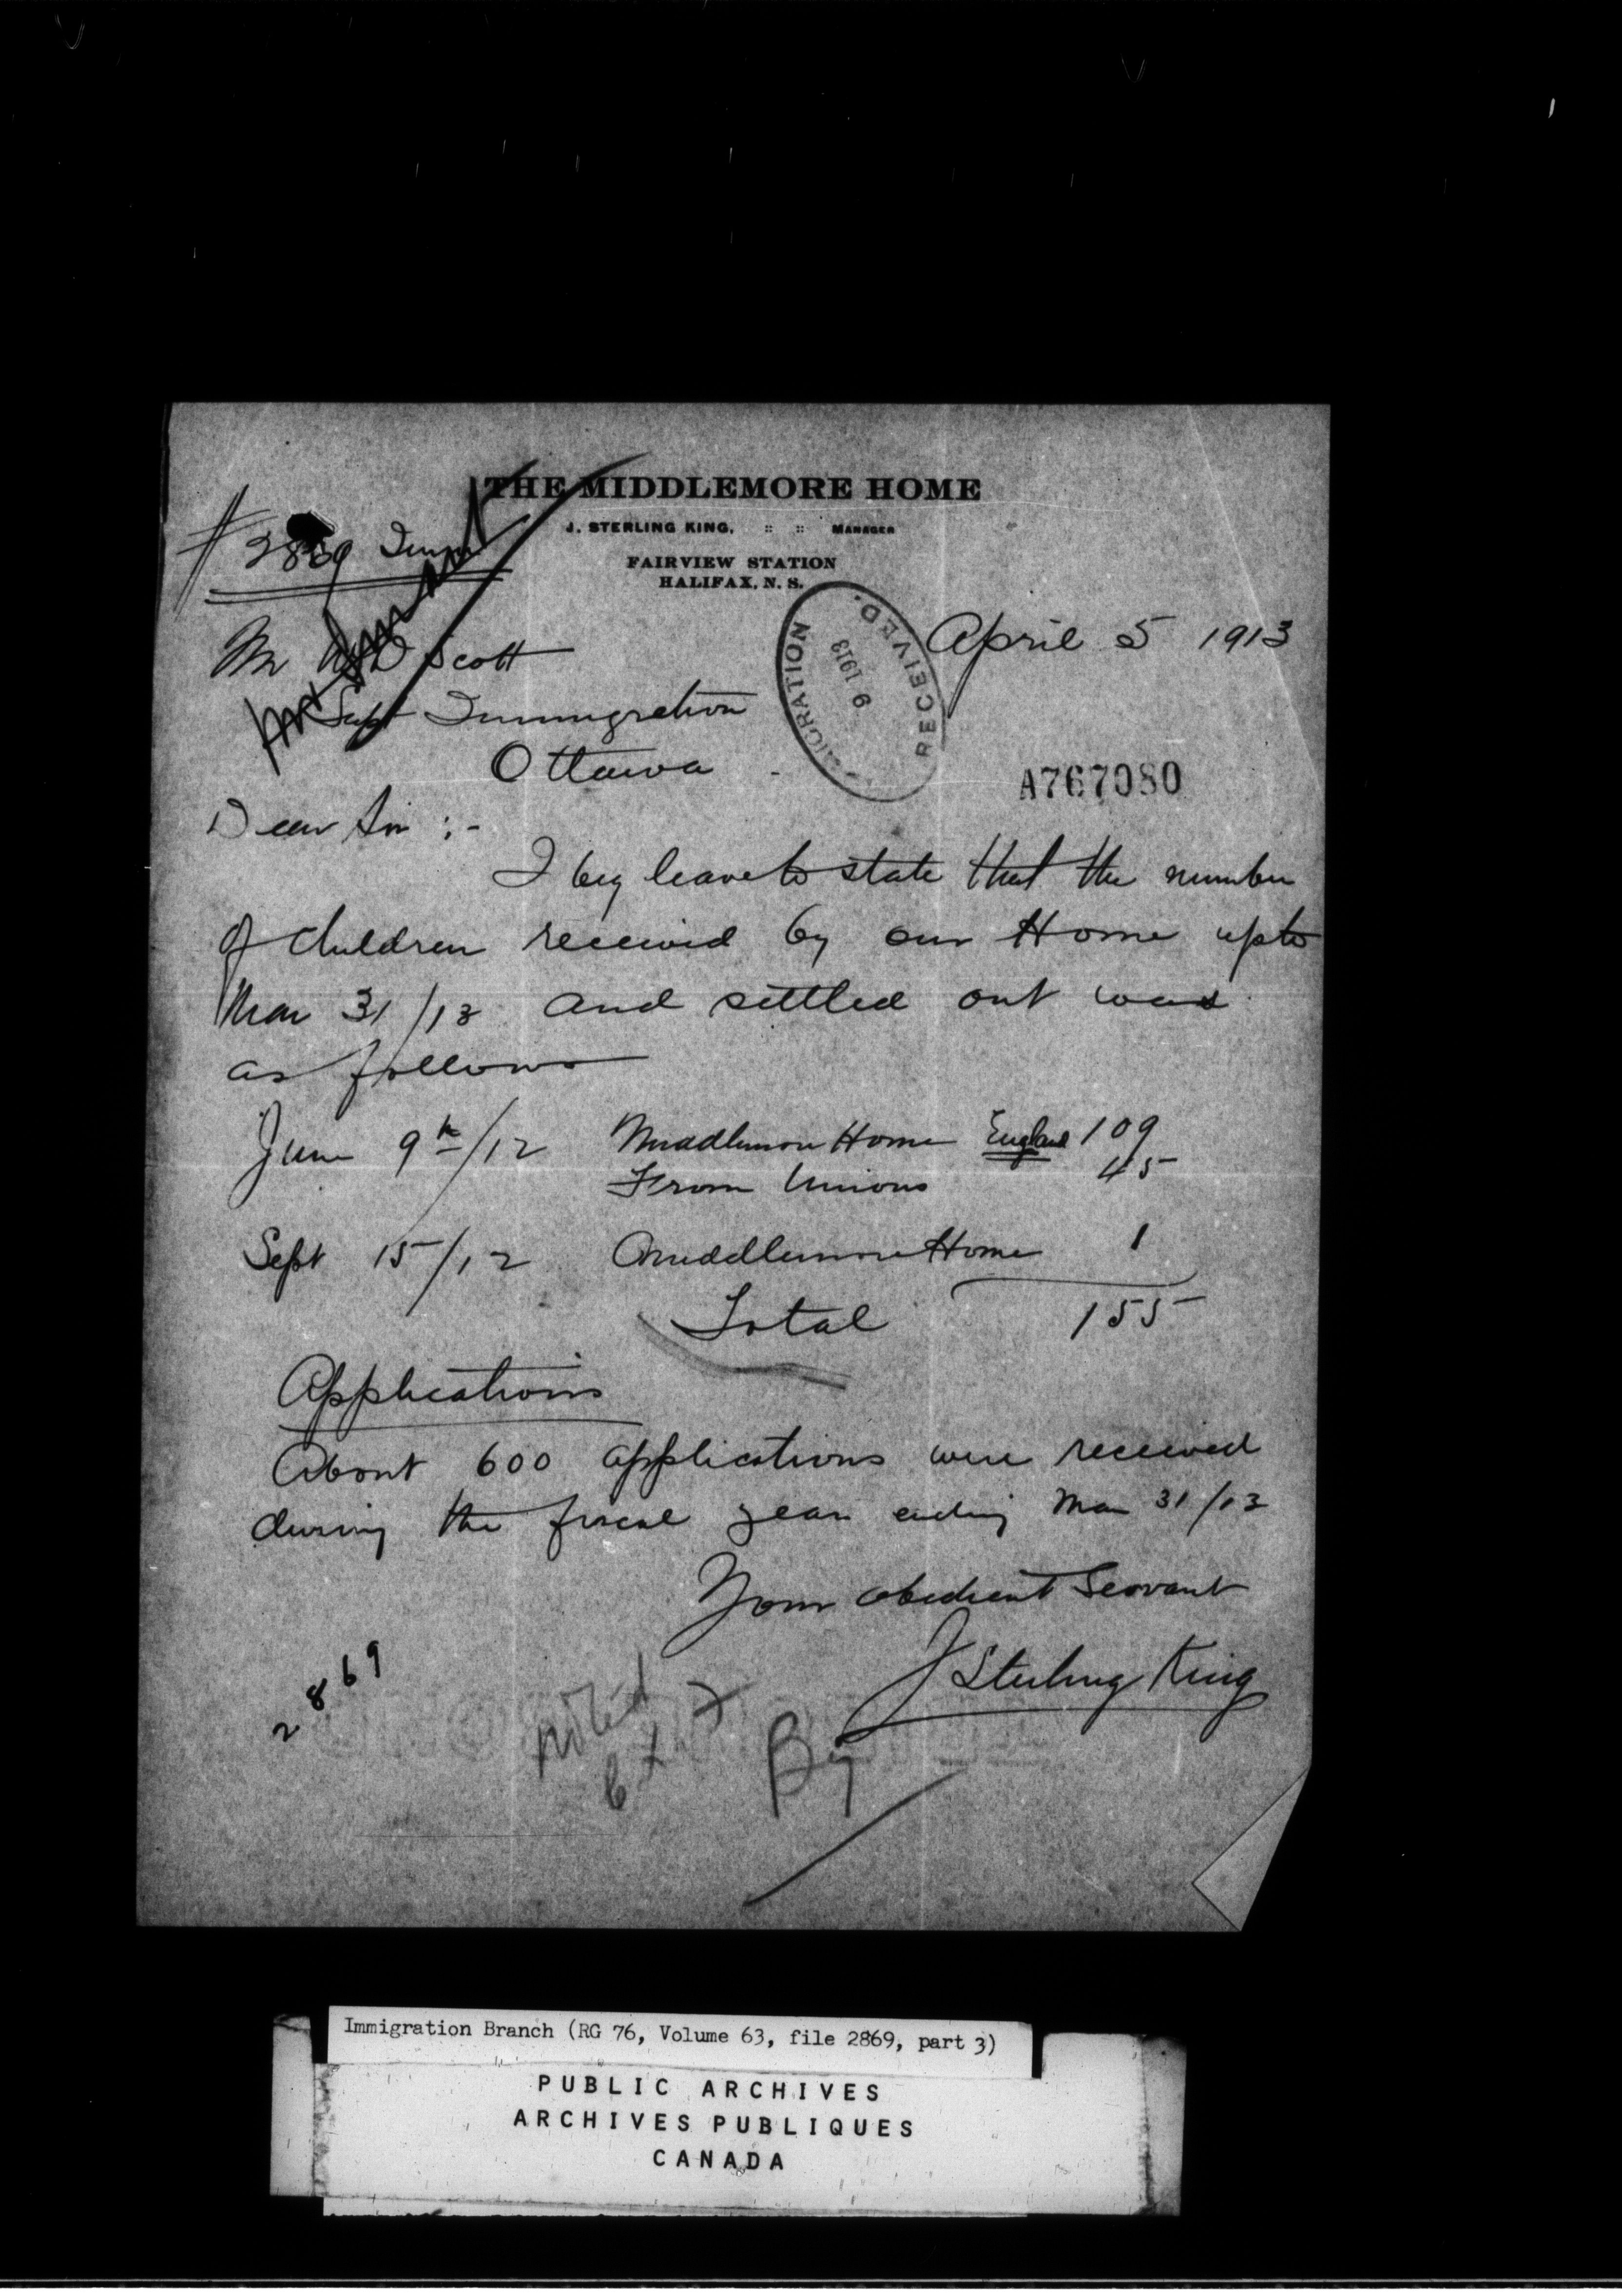 THE MIDDLEMORE HOME
J. STERLING KING, :: :: MANAGER
FAIRVIEW STATION
HALIFAX, N. S.
# 2869 Imm
April 5 1913
Mr W D Scott
Supt Immigration
Ottawa
IMMIGRATION
9 1913
RECEIVED.
A767080
Dear Sir :-
I beg leave to state that the number
of children received by our Home up to
Mar 31/13 and settled out was
as follows
June 9th/12 Middlemore Home England 109
From Unions 45
Sept 15/12 Middlemore Home 1
Total 155
Applications
About 600 applications were received
during the fiscal year ending Mar 31/13
Your obedient Servant
J Sterling King
2869
noted
By
Immigration Branch (RG 76, Volume 63, file 2869, part 3)
PUBLIC ARCHIVES
ARCHIVES PUBLIQUES
CANADA